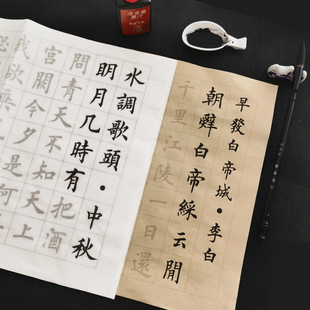 早發白帝城•李白
朝辤白帝綵云閒
千里江陵一日還
水調歌頭•中秋
明月几時有把酒
問青天不知天上
宮闕今夕是何
我欲乘